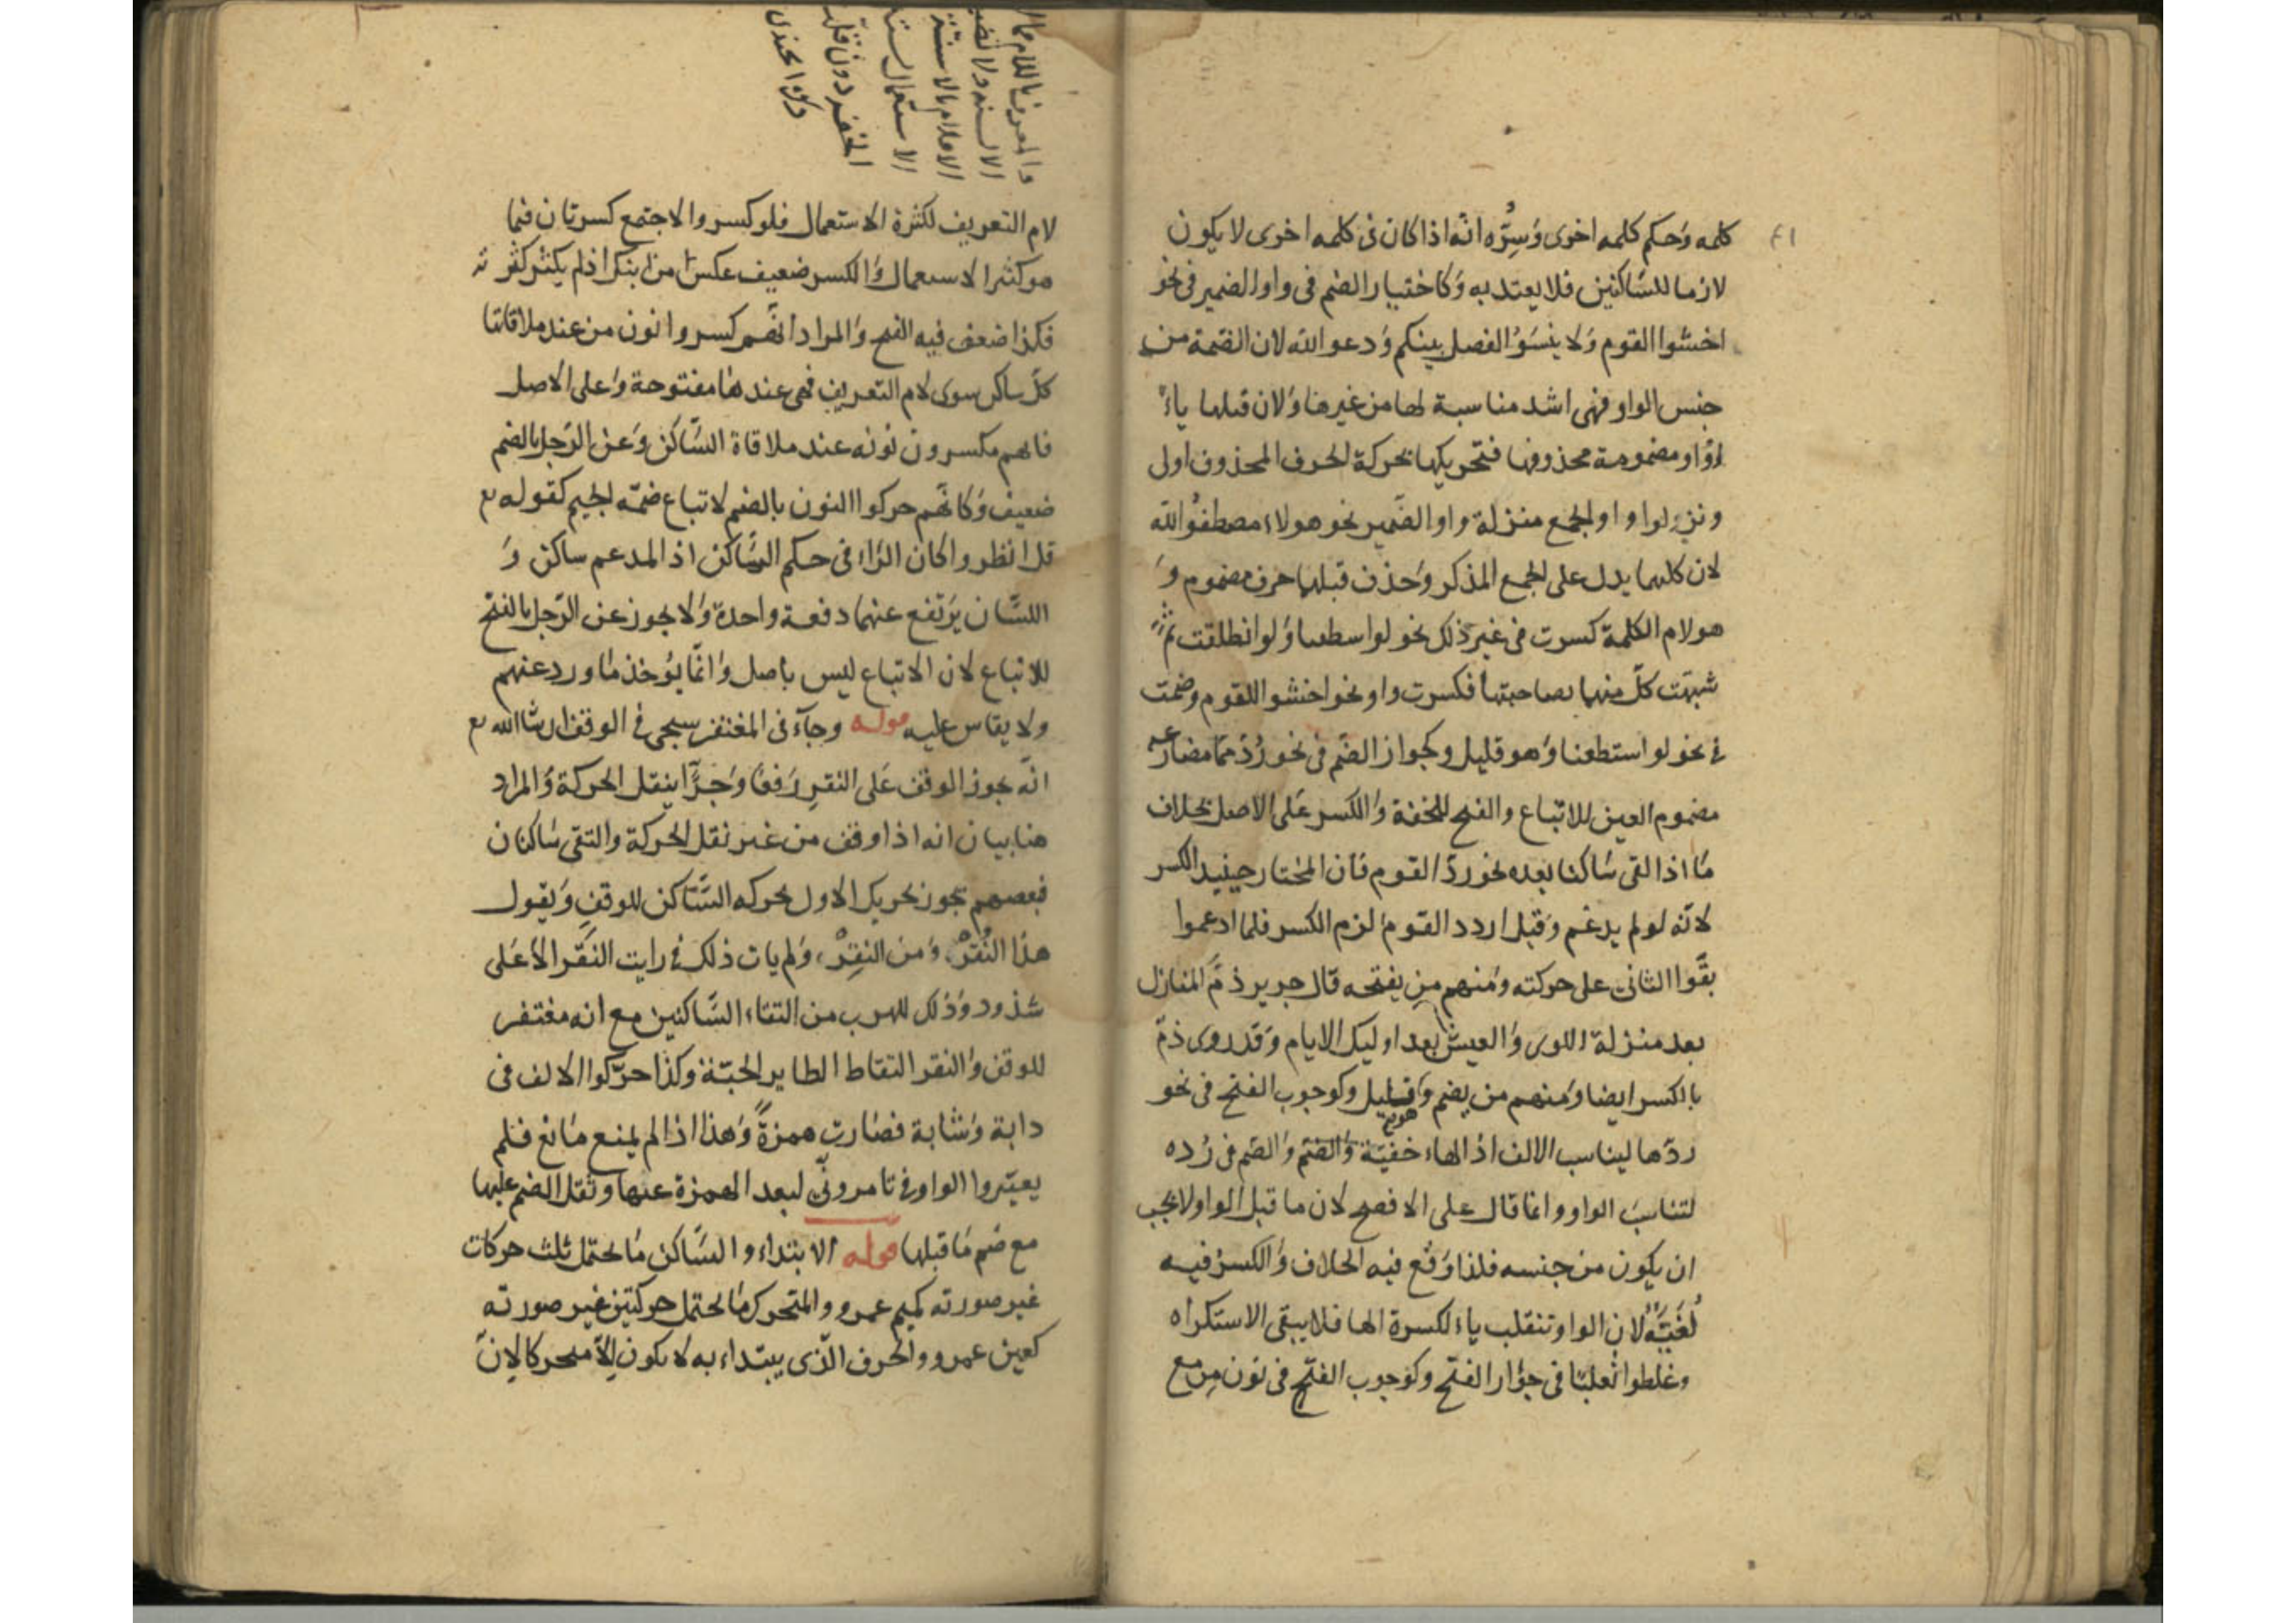 كلمه وحكم كلمه اخرى وسِرُّه انّه اذا كان فى كلمه اخرى لا يكون
لازما للسّاكنين فلا يعتد به وكاختيار الضم فى واو الضمير فى نحو
اخشوا القوم ولا ينسَوُا الفصل بينكم ودعوا الله لان الضمة من
جنس الواو فهى اشد مناسبة لها من غيرها ولان قبلها ياءً
او واو مضمومة محذوفها فتحريكها بحركة الحرف المحذوف اولى
ونزلوا واو الجمع منزلة واو الضمير نحو هولاء مصطفُو الله
لان كليهما يدل على الجمع المذكر وحذف قبلها حرف مضموم و
هو لام الكلمة كسرت فى غير ذلك نحو لو اسطعنا ولو انطلقت ثم
شبهّت كلّ منهما بصاحبتها فكسرت واو نحو اخشو القوم وضمت
فى نحو لو استطعنا وهو قليل وكجواز الضّم فى نحو رُدّ مما مضارعه
مضموم العين للاتباع والفتح للخفة والكسر على الاصل بخلاف
ما اذا لقى ساكنا بعده نحو ردّ القوم فان المختار حينيد الكسر
لانّه لو لم يدغم وقيل اردد القوم لزم الكسر فلما ادغموا
بقّوا الثانى على حركته ومنهم من يفتحه قال جرير ذمّ المنازل
بعد منزلة اللوى والعيش بعد اوليك الايام وقد روى ذمّ
بالكسر ايضا ومنهم من يضم وهو قليل وكوجوب الفتح فى نحو
ردّها ليناسب الالف اذ الهاء خفيّة والضم فى رُده
لتناسب الواو وانما قال على الافصح لان ما قبل الواو لا يجب
ان يكون من جنسه فلذا وقع فيه الخلاف والكسر فيه
لُغَيّةٌ لان الواو تنقلب ياء لكسرة الها فلا يبقى الاستكراه
وغلطوا ثعلبًا فى جواز الفتح وكوجوب الفتح فى نون مِن مع
لام التعريف لكثرة الاستعمال فلو كسر والاجتمع كسرتان فيما
هو كثير الاستعمال والكسر ضعيف عكس من ابنك اذ لم يكثر كثرته
فكذا ضعف فيه الفتح والمراد انّهم كسروا نون من عند ملاقاتها
كلّ ساكن سوى لام التعريف فهى عندها مفتوحة وعلى الاصل
فانهم يكسرون نونه عند ملاقاة السّاكن وعن الرّجل بالضم
ضعيف وكانّهم حركوا النون بالضم لاتباع ضمّه الجيم كقوله تع
قل انظروا كان الرّاء فى حكم السّاكن اذ المدغم ساكن و
اللسّان يرتفع عنهما دفعة واحدة ولا يجوز عن الرّجل بالفتح
للاتباع لان الاتباع ليس باصل وانّما يوخذ ما ورد عنهم
ولا يقاس عليه قوله وجآء فى المغتفر سيجى فى الوقف ان شا الله تع
انّه يجوز الوقف على النقر رفعًا وجرًّا ينقل الحركة والمراد
هنا بيان انه اذا وقف من غير نقل الحركة والتقى ساكنان
فبعضهم يجوز تحريك الاول بحركه السّاكن للوقف ويقول
هذا النُقرْ ومن النقِرْ ولم يات ذلك فى رايت النقَر الا على
شذود وذلك للهرب من التقاء السّاكنين مع انه مغتفر
للوقف والنقر التقاط الطاير الحبّة وكذا حرّكوا الالف فى
دابة وشابة فصارت همزةً وهذا اذا لم يمنع مانع فلم
يغيّروا الواو فى تامرونّى لبعد الهمزة عنها وثقل الضم عليها
مع ضم ما قبلها قوله الابتداء والسّاكن ما يحتمل ثلث حركات
غير صورته كميم عمرو والمتحرك ما يحتمل حركتين غير صورته
كعين عمرو والحرف الذى يبتداء به لا يكون الّا متحركا لانّ
والمعرف باللام